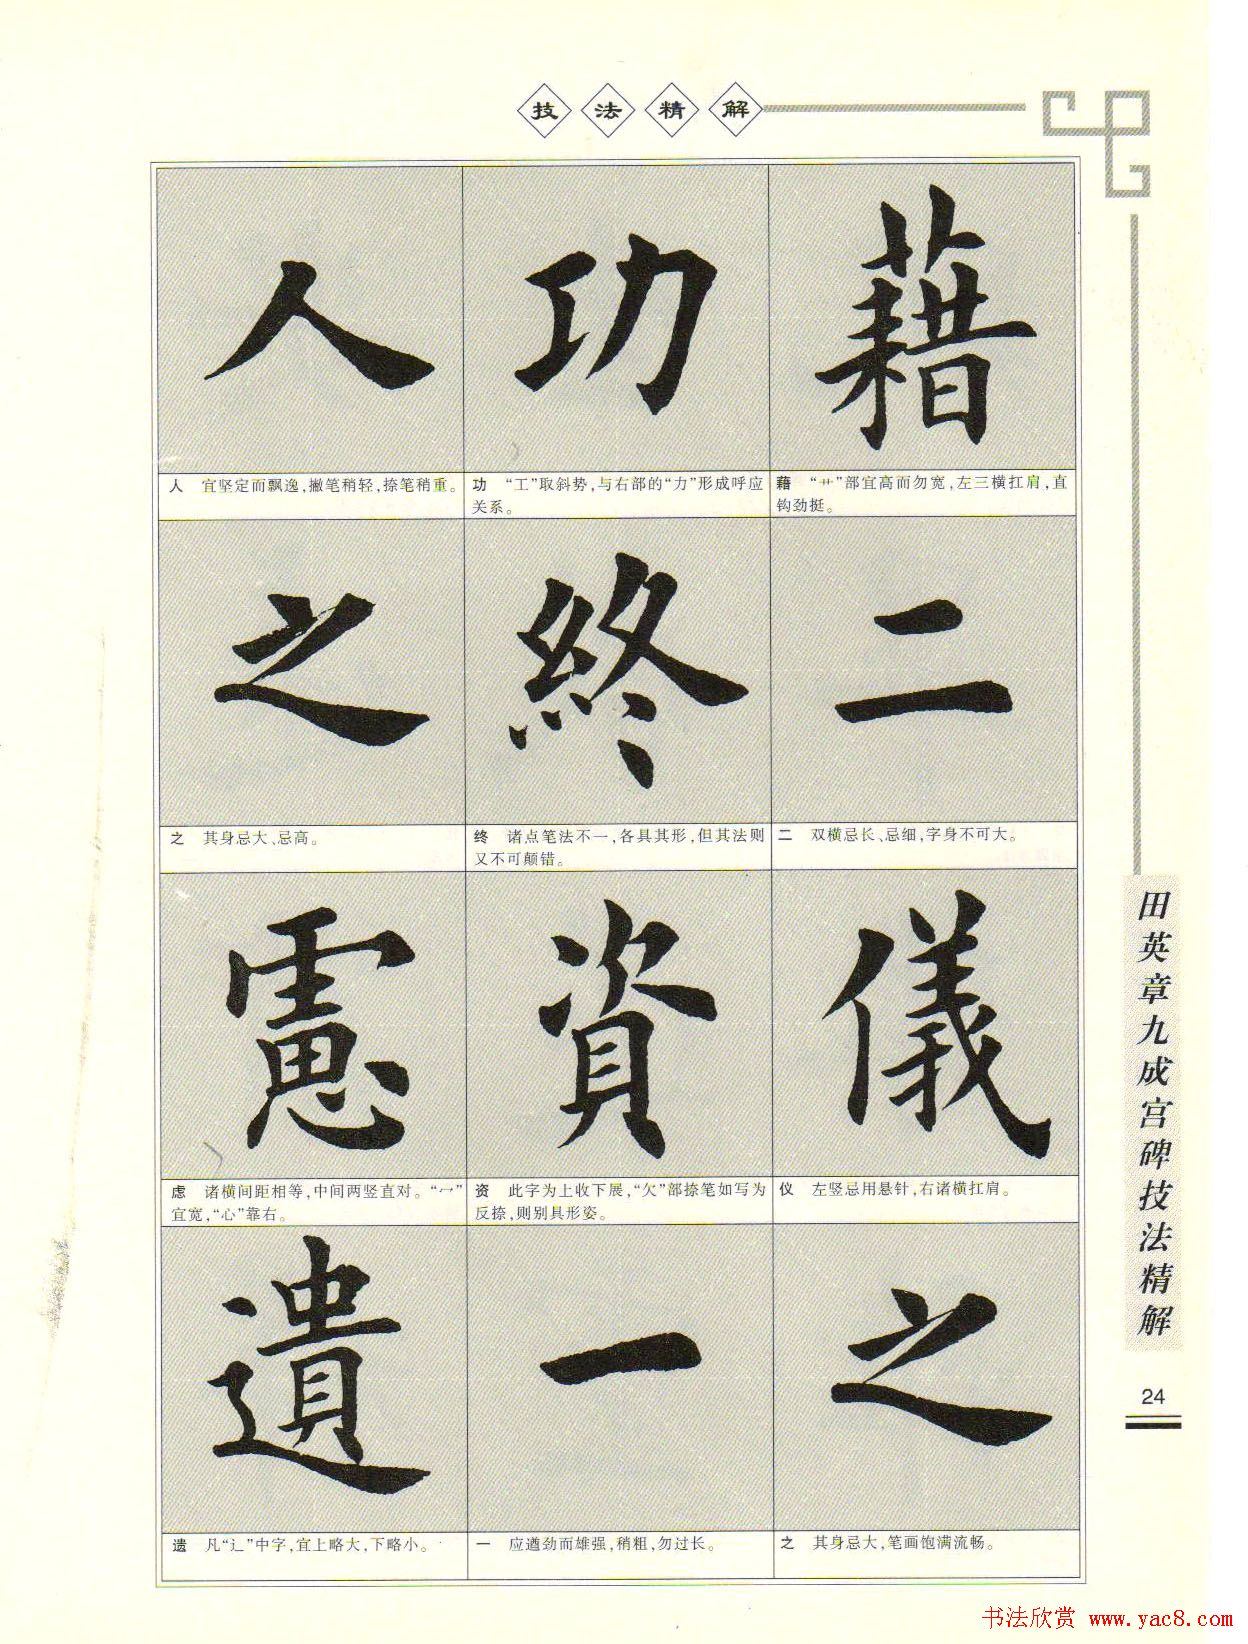 技法精解
人 功 藉
人 宜坚定而飘逸,撇笔稍轻,捺笔稍重。
功 “工”取斜势,与右部的“力”形成呼应
关系。
藉 “艹”部宜高而勿宽,左三横扛肩,直
钩劲挺。
之 終 二
之 其身忌大、忌高。
终 诸点笔法不一,各具其形,但其法则
又不可颠错。
二 双横忌长、忌细,字身不可大。
慮 資 儀
虑 诸横间距相等,中间两竖直对。“冖”
宜宽,“心”靠右。
资 此字为上收下展,“欠”部捺笔如写为
反捺,则别具形姿。
仪 左竖忌用悬针,右诸横扛肩。
遺 一 之
遗 凡“辶”中字,宜上略大,下略小。
一 应遒劲而雄强,稍粗,勿过长。
之 其身忌大,笔画饱满流畅。
田英章九成宫碑技法精解
24
书法欣赏 www.yac8.com